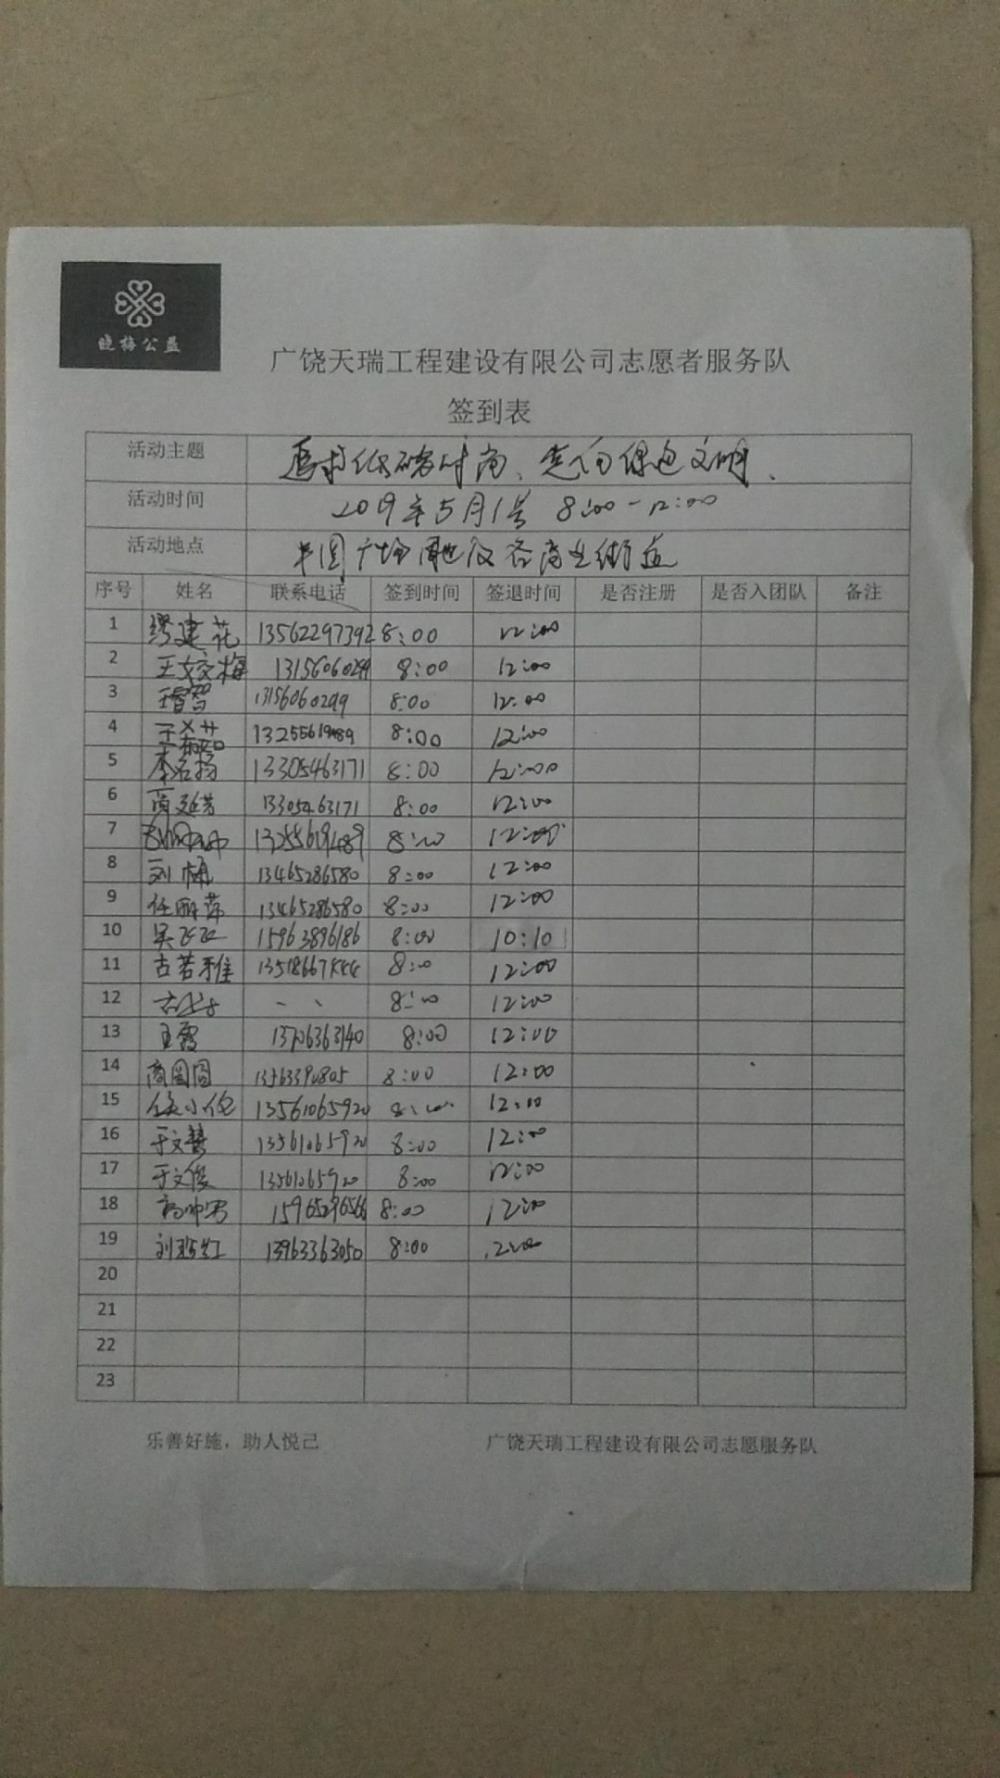 晓梅公益
广饶天瑞工程建设有限公司志愿者服务队
签到表
活动主题 追求低碳时尚、走向绿色文明、
活动时间 2019年5月1号 8:00-12:00
活动地点 广场 及各商业街道
序号 姓名 联系电话 签到时间 签退时间 是否注册 是否入团队 备注
1 缪建花 13562297392 8:00 12:00
2 王姣梅 13156060299 8:00 12:00
3 13156060299 8:00 12:00
4 王希茹 13255619489 8:00 12:00
5 李名扬 13305463171 8:00 12:00
6 商延芳 13305463171 8:00 12:00
7 13255619489 8:00 12:00
8 刘梅 13465286580 8:00 12:00
9 任丽萍 13465286580 8:00 12:00
10 吴飞飞 15963896186 8:00 10:10
11 古若雅 8:00 12:00
12 8:00 12:00
13 王霞 13706363140 8:00 12:00
14 商圆圆 8:00 12:00
15 13561065920 8:00 12:00
16 于文慧 13561065920 8:00 12:00
17 于文俊 13561065920 8:00 12:00
18 8:00 12:00
19 13963363050 8:00 12:00
20
21
22
23
乐善好施，助人悦己 广饶天瑞工程建设有限公司志愿服务队